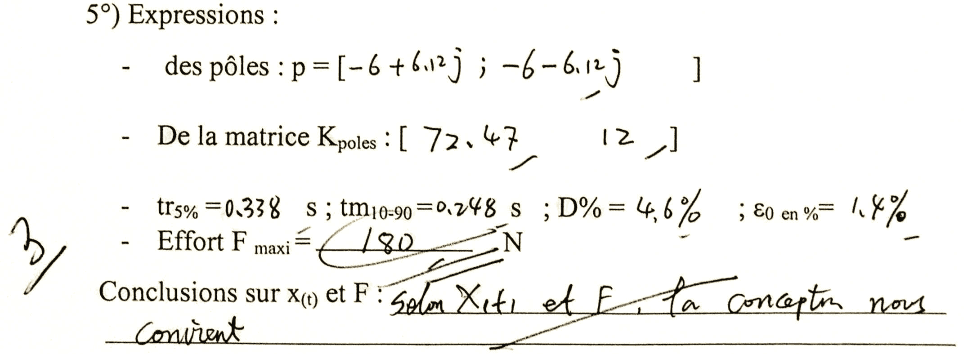 5°) Expressions :
- des pôles : p = [-6 + 6.12j ; -6 - 6.12j ]
- De la matrice Kpoles : [ 72.47 12 ]
- tr5% = 0.338 s ; tm10-90 = 0.248 s ; D% = 4,6% ; ε0 en %= 1.4%
3/
- Effort F maxi = 180 N
Conclusions sur x(t) et F : Selon X(t) et F, la conception nous
convient